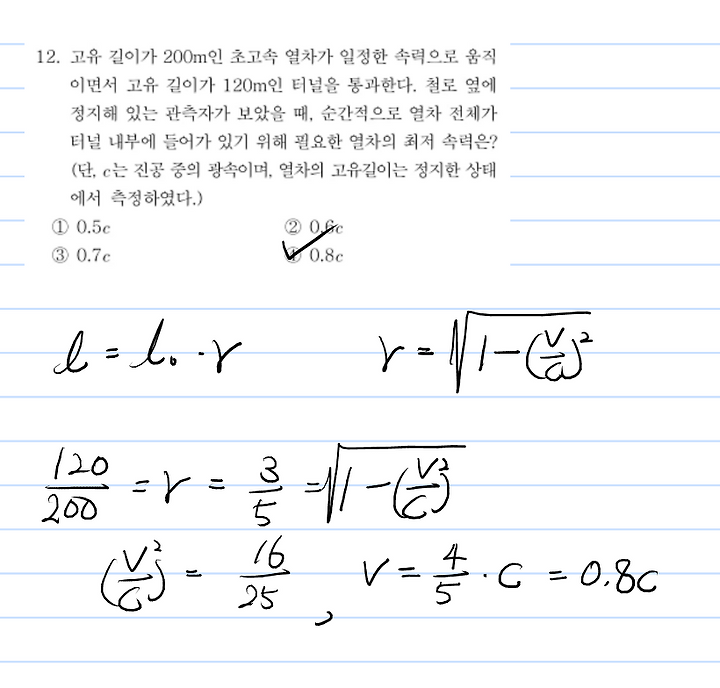 12. 고유 길이가 200m인 초고속 열차가 일정한 속력으로 움직
이면서 고유 길이가 120m인 터널을 통과한다. 철로 옆에
정지해 있는 관측자가 보았을 때, 순간적으로 열차 전체가
터널 내부에 들어가 있기 위해 필요한 열차의 최저 속력은?
(단, c는 진공 중의 광속이며, 열차의 고유길이는 정지한 상태
에서 측정하였다.)
① 0.5c ② 0.6c
③ 0.7c ④ 0.8c
l = l₀ · r r = √(1-(v/c)²)
120/200 = r = 3/5 = √(1-(v/c)²)
(v/c)² = 16/25 , v = 4/5 · c = 0.8c